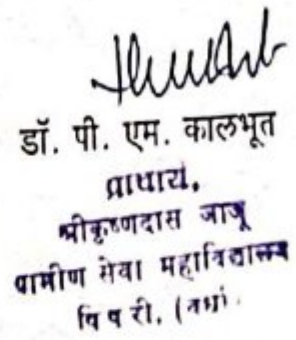 डॉ. पी. एम. कालभूत
प्राचार्य,
श्रीकृष्णदास जाजू
ग्रामीण सेवा महाविद्यालय
पिपरी, (वर्धा).